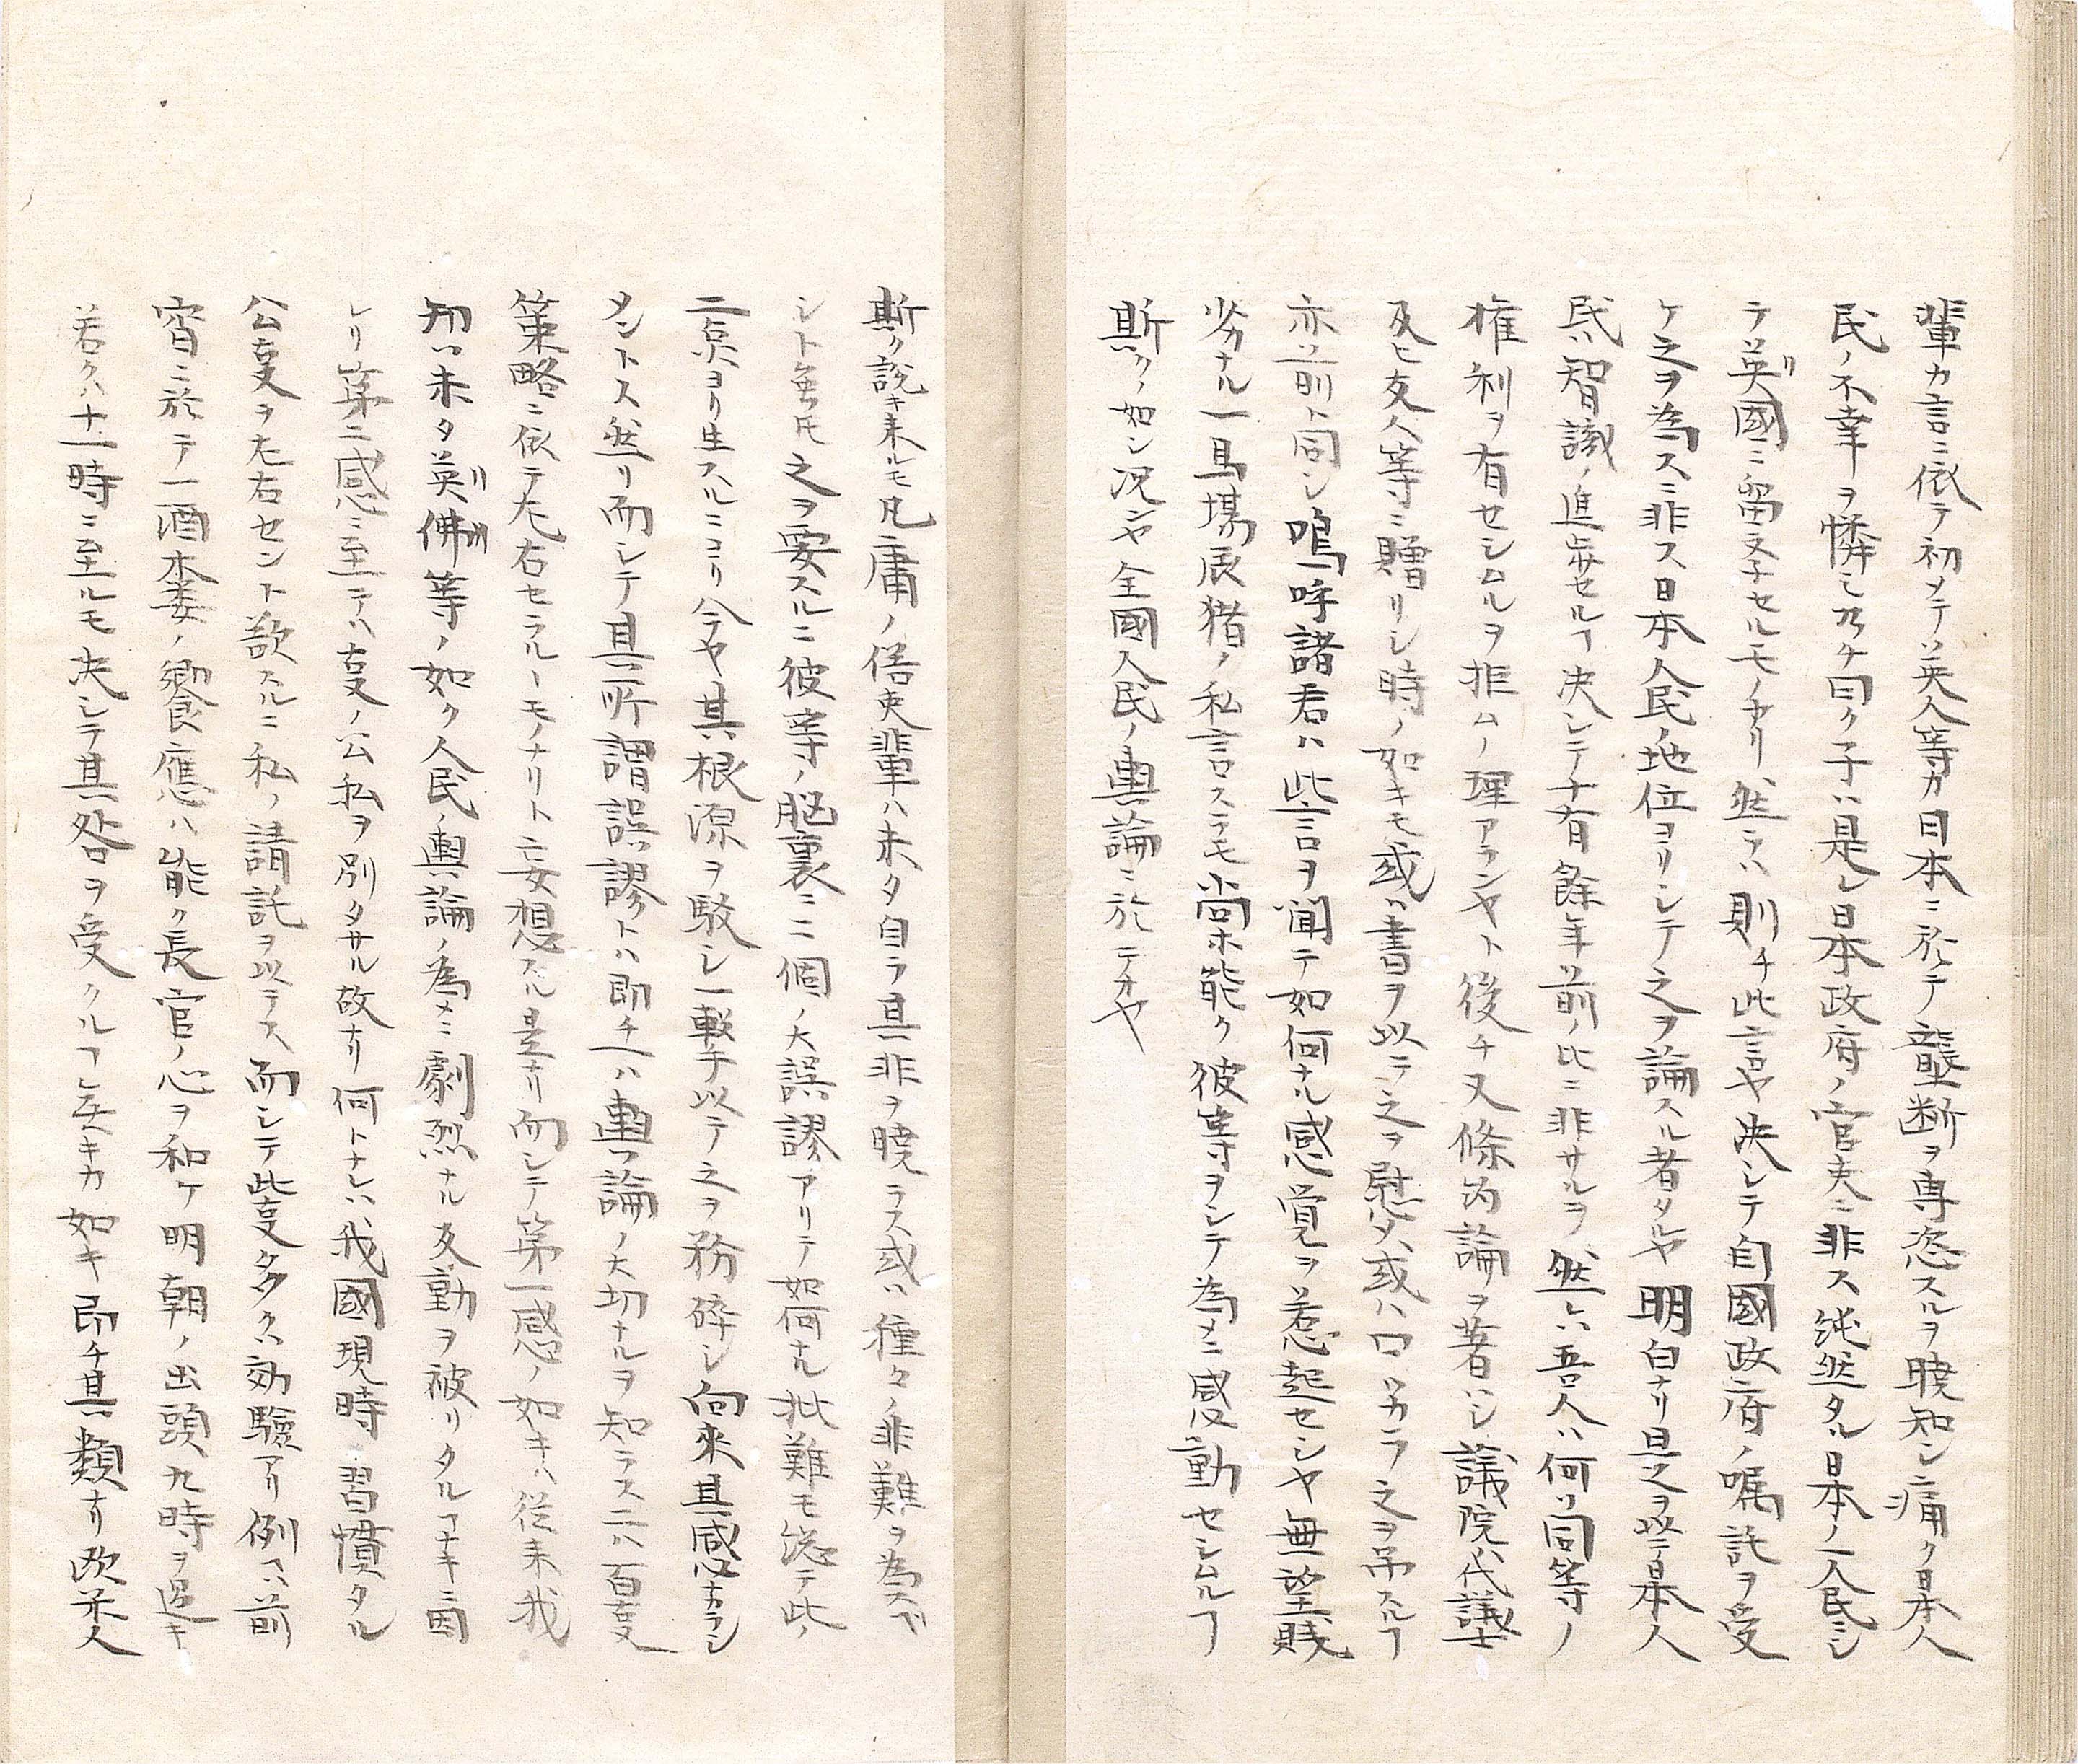 輩カ言ニ依テ初メテソ英人等カ日本ニ於テ壟断ヲ専恣スルヲ暁知シ痛ク日本人
民ノ不幸ヲ憐ミ乃ケ曰ク子ハ是レ日本政府ノ官吏ニ非ス純然タル日本ノ一人民ニシ
テ英國ニ留学セルモノナリ然ラハ則チ此言ヤ决シテ自國政府ノ嘱託ヲ受
ケ之ヲ為スニ非ス日本人民ノ地位ヨリシテ之ヲ論スル者タルヤ明白ナリ是之ヲ以テ日本人
民ハ智識ノ進歩セルヿ决シテ十有餘年前ノ比ニ非サルヲ然レハ吾人ハ何ソ同等ノ
権利ヲ有セシムルヲ非ムノ理アランヤト後チ又條約論ヲ著ハシ議院代議士
及ヒ友人等ニ贈リシ時ノ如キモ或ハ書ヲ以テ之ヲ慰メ或ハ口ツカラ之ヲ吊スルヿ
亦前ト同シ嗚呼諸君ハ此言ヲ聞テ如何ナル感覚ヲ惹起セシヤ無望賎
劣ナル一馬場辰猪ノ私言ニテモ尚ホ能ク彼等ヲシテ為メニ感動セシムルヿ
斯クノ如シ况ンヤ全國人民ノ輿論ニ於テオヤ
斯ク説キ来ルモ凡庸ノ俗吏輩ハ未タ自ラ其非ヲ暁ラス或ハ種々ノ非難ヲ為スベ
シト雖モ之ヲ要スルニ彼等ノ脳裏ニ二個ノ大誤謬アリテ如何ナル批難モ総テ此ノ
二点ヨリ生スルニヨリ今ヤ其根源ヲ駁シ一撃以テ之ヲ粉碎シ向来其惑ナカラシ
メントス然リ而シテ其所謂誤謬トハ即チ一ハ輿論ノ大切ナルヲ知ラス二ハ百事
策略ニ依テ左右セラルヽモノナリト妄想スル是ナリ而シテ第一惑ノ如キハ従来我
邦ハ未タ英佛等ノ如ク人民ノ輿論ノ為メニ劇烈ナル反動ヲ被リタルヿナキニ因
レリ第二惑ニ至テハ事ノ公私ヲ別タサル故ナリ何トナレハ我國現時ノ習慣タル
公事ヲ左右セント欲スルニ私ノ請託ヲ以テス而シテ此事多クハ効驗アリ例ヘハ前
宵ニ於テ一酒楼ノ饗應ハ能ク長官ノ心ヲ和ケ明朝ノ出頭九時ヲ過キ
若クハ十一時ニ至ルモ决シテ其咎ヲ受クルヿ無キカ如キ即チ其類ナリ欧米人